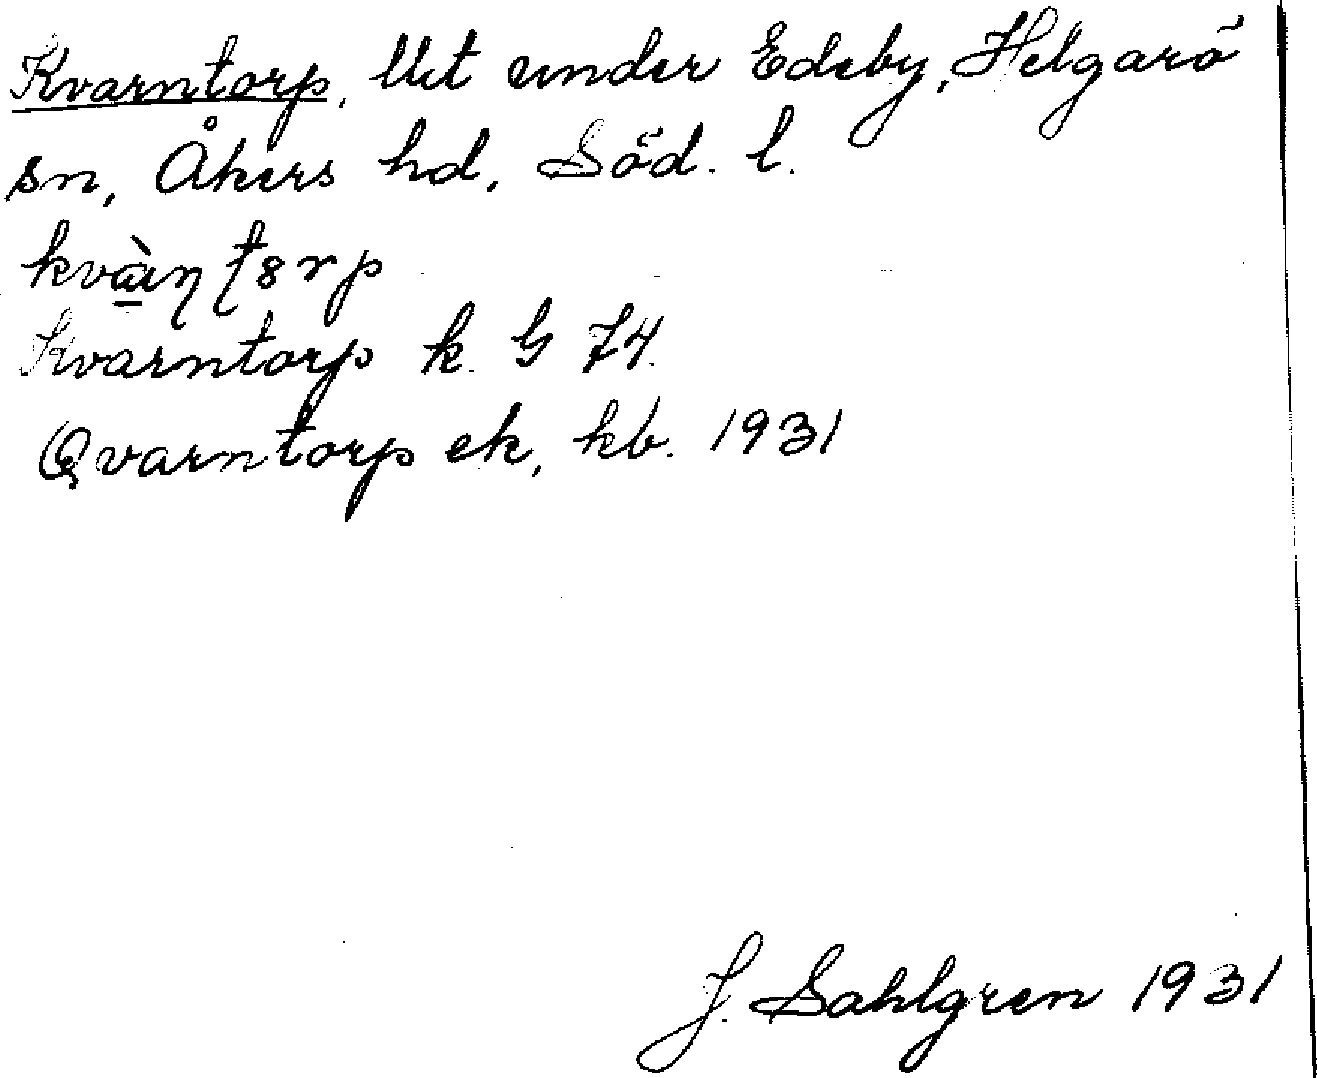 Kvarntorp, llt under Edeby, Helgarö
sn, Åkers hd, Söd. l.
kvàɳʈ8rp
Kvarntorp k. G 74.
Qvarntorp ek, kb. 1931
J. Sahlgren 1931